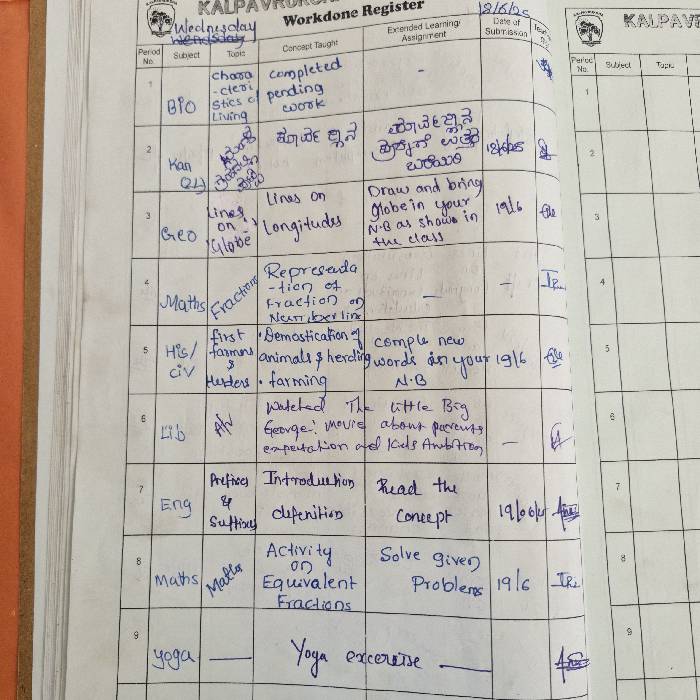 KALPAVRUK
Workdone Register
18/6/25
Wednesday
Wendsday
Period No. Subject Topic Concept Taught Extended Learning/ Assignment Date of Submission
1 BIO chara -cteri stics of Living completed pending work -
2 Kan (2L) 18/6/25
3 Geo Lines on Globe Lines on Longitudes Draw and bring globe in your N.B as shown in the class 19/6
4 Maths Fractions Representa -tion of Fraction on Number line — -
5 His/ civ first farmers & Herders • Demostication of animals & herding • farming comple new words in your N.B 19/6
6 Lib A/V Watched The Little Big George: movie about parents expectation and Kids Ambition —
7 Eng Prefixes & Suffixes Introduction defenition Read the concept 19/06/25
8 Maths Maths Activity on Equivalent Fractions Solve given Problems 19/6
9 Yoga — Yoga excercise —
KALPAVR
Period No. Subject Topic
1
2
3
4
5
6
7
8
9